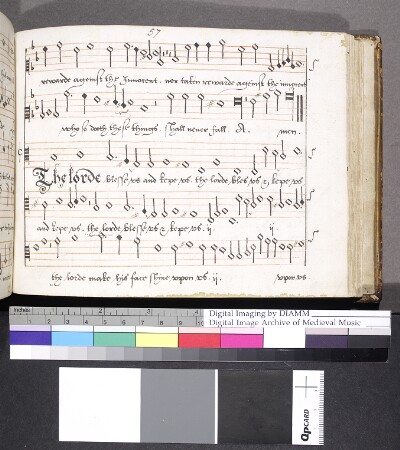 57
rewarde against the Innocent. nor taken rewarde against the innocent
who so doeth these thinges. shall never fall. A. men.
The lorde blesse us and kepe us. the lorde bles us & kepe us
and kepe us. the lorde blesse us & kepe us. ij ij
the lorde make his face shyne uppon us. ij. uppon us.
inches 1 2
1 2 3 4 5 6 7 8 9 10
Digital Imaging by DIAMM
Digital Image Archive of Medieval Music
QPCARD